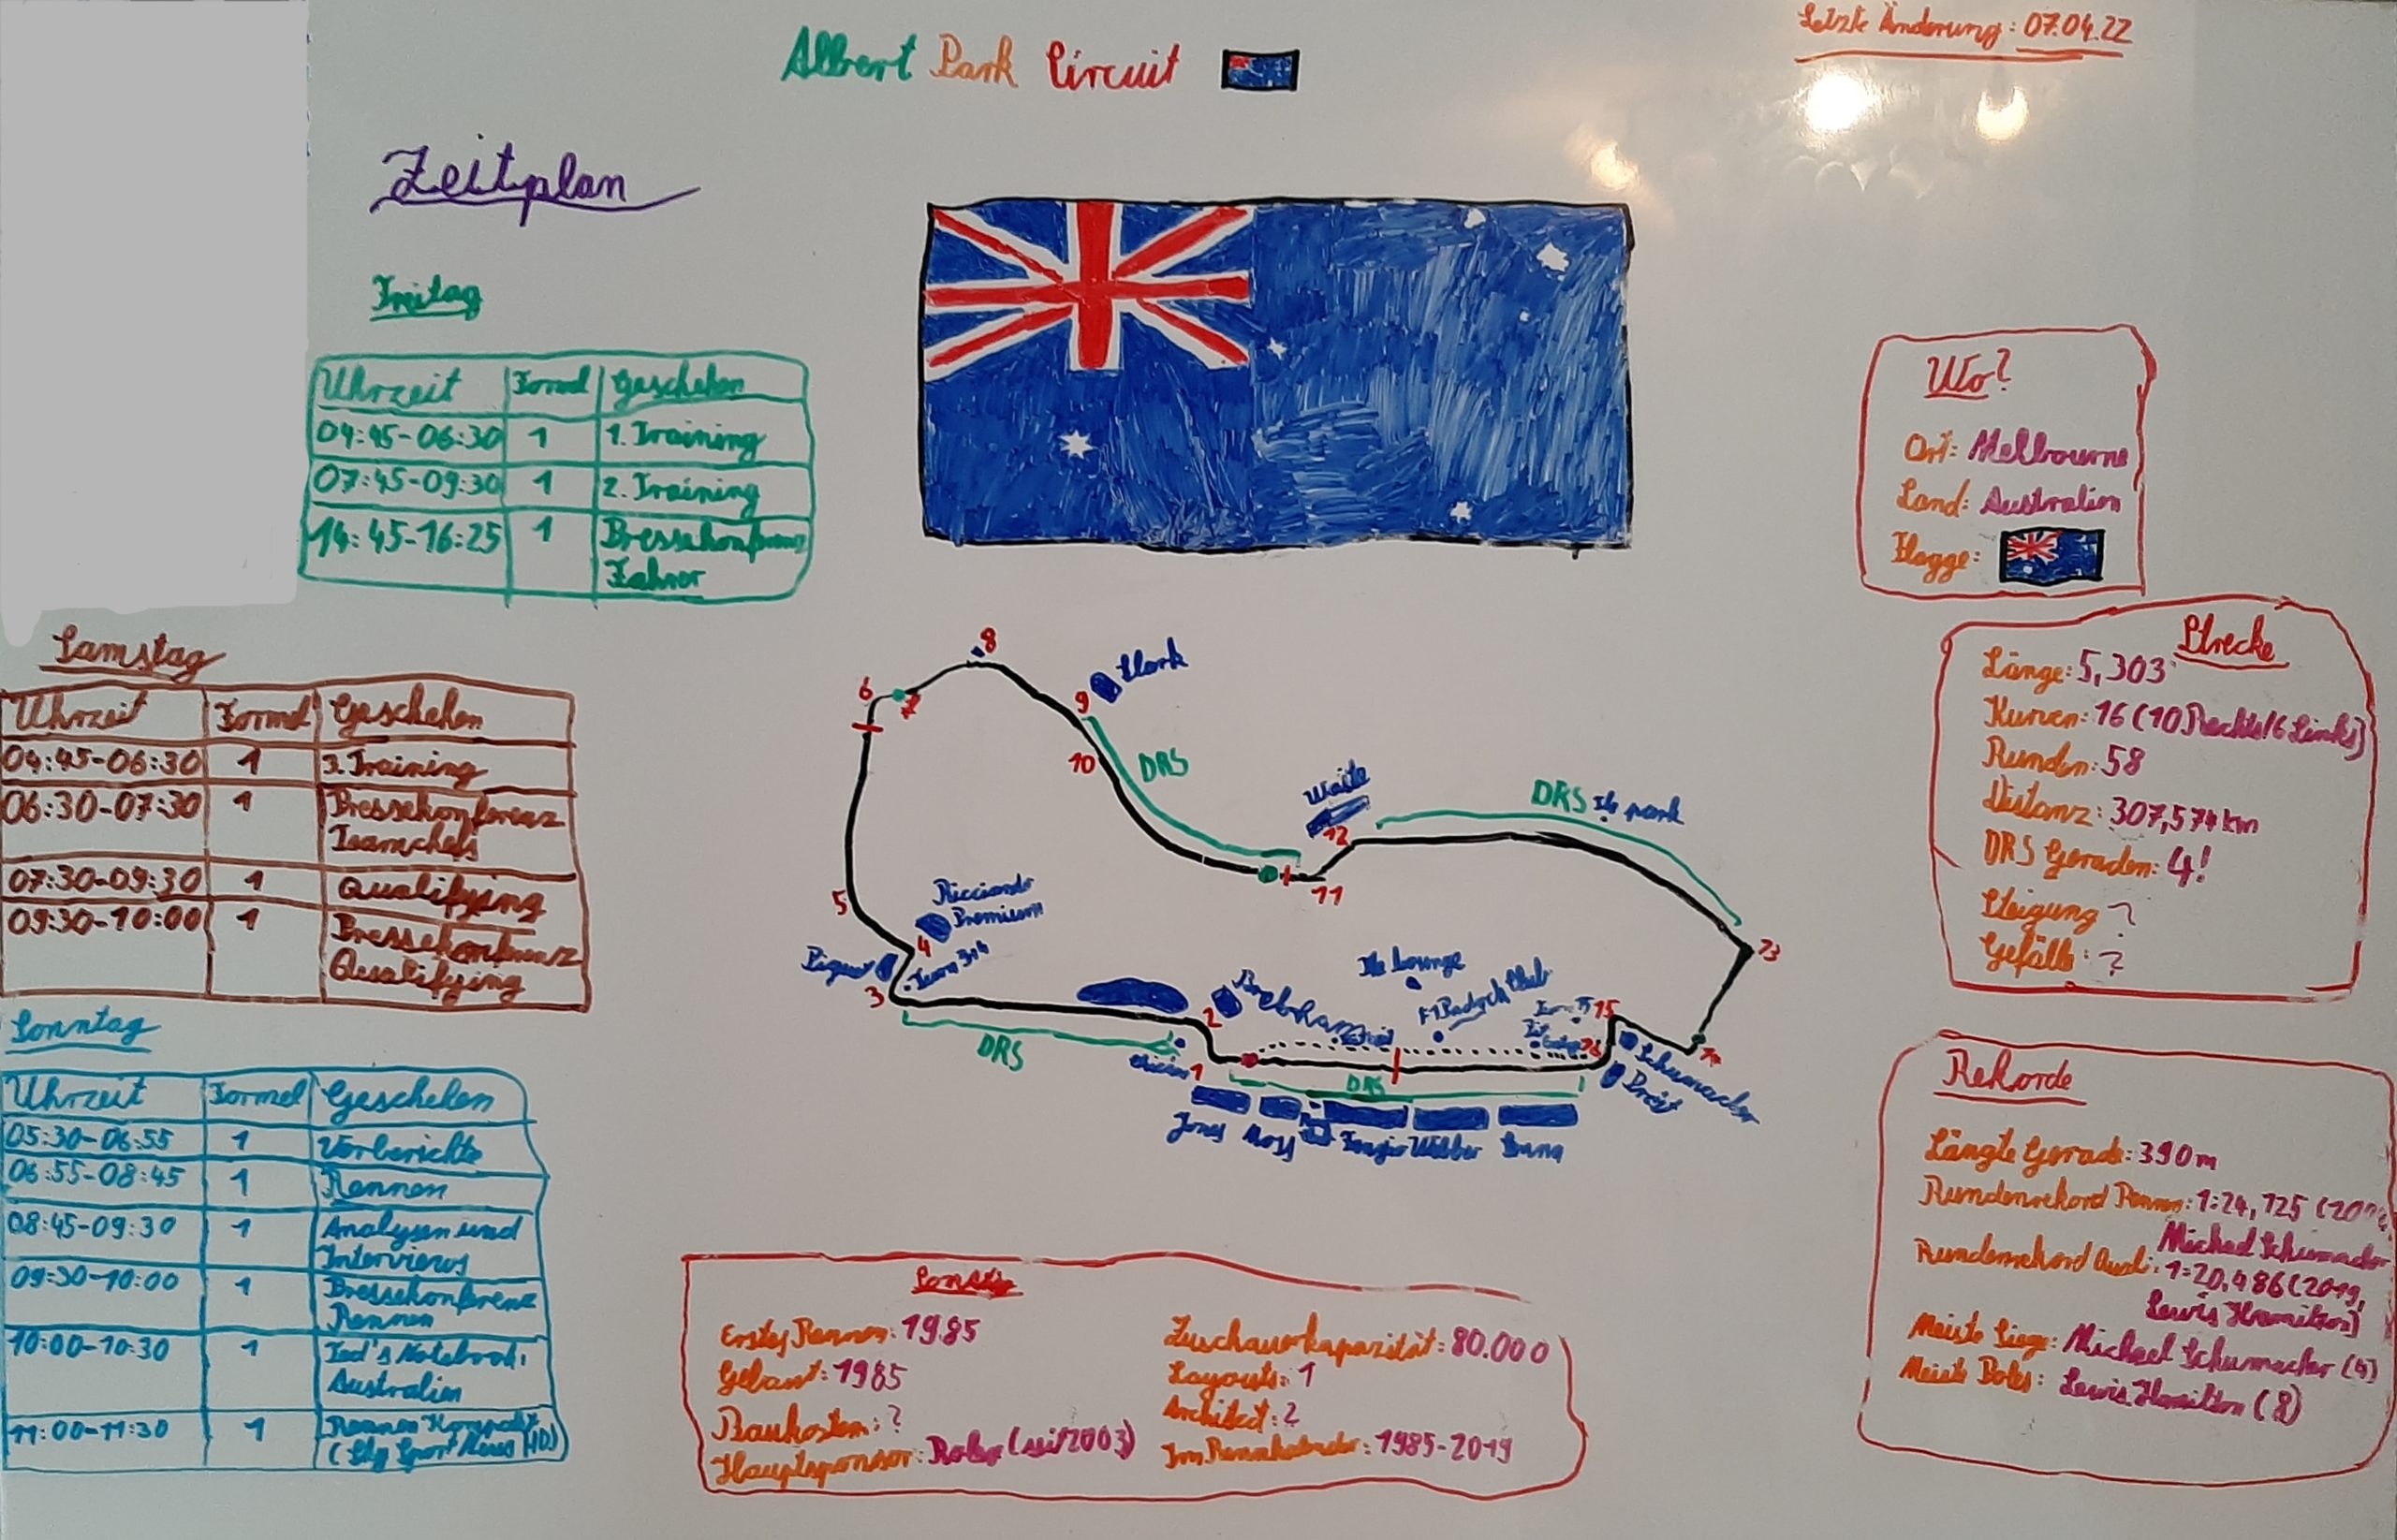 Letzte Änderung: 07.04.22
Albert Park Circuit
Zeitplan
Freitag
Uhrzeit Formel Geschehen
04:45-06:30 1 1. Training
07:45-09:30 1 2. Training
14:45-16:25 1 Pressekonferenz
Fahrer
Samstag
Uhrzeit Formel Geschehen
04:45-06:30 1 3. Training
06:30-07:30 1 Pressekonferenz
Teamchefs
07:30-09:30 1 Qualifying
09:30-10:00 1 Pressekonferenz
Qualifying
Sonntag
Uhrzeit Formel Geschehen
05:30-06:55 1 Vorberichte
06:55-08:45 1 Rennen
08:45-09:30 1 Analysen und
Interviews
09:30-10:00 1 Pressekonferenz
Rennen
10:00-10:30 1 Ted's Notebook:
Australien
11:00-11:30 1 Rennen Kompakt
(Sky Sport News HD)
8
Clark
6
7
9
10
DRS
Waite
12
DRS
park
11
5
Ricciardo
Premium
4
Piquet
3
13
Lounge
Brabham
2
15
14
DRS
1
DRS
Schumacher
Jones Moss Fangio Webber Senna
Wo?
Ort: Melbourne
Land: Australien
Flagge:
Strecke
Länge: 5,303
Kurven: 16 (10 Rechts/6 Links)
Runden: 58
Distanz: 307,574 km
DRS Geraden: 4!
Steigung ?
Gefälle: ?
Rekorde
Längte Gerade: 390m
Rundenrekord Rennen: 1:24,125
Michael Schumacher
Rundenrekord Quali: 1:20,486 (2019,
Lewis Hamilton)
Meiste Siege: Michael Schumacher (4)
Meiste Poles: Lewis Hamilton (8)
Erstes Rennen: 1985
Gebaut: 1985
Baukosten: ?
Hauptsponsor: Rolex (seit 2003)
Zuschauerkapazität: 80.000
Layouts: 1
Architect: ?
Im Rennkalender: 1985-2019